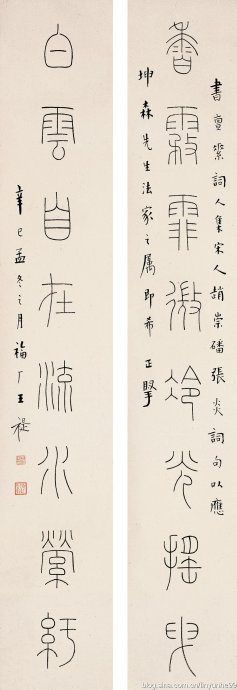 書亶詞人集宋人趙崇磻張炎詞句以應
香霧霏微冷光搖曳
坤森先生法家之属即希正
白雲自在流水縈紆
辛巳孟冬之月福厂王禔
blog.sina.com.cn/linyunhe99